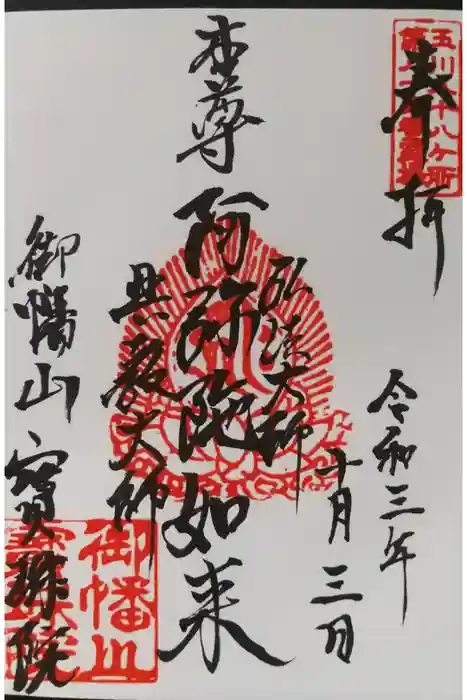 奉拝
令和三年
十月三日
弘法大師
本尊 阿弥陀如来
興教大師
御幡山 寳珠院
玉川八十八ヶ所
御幡山